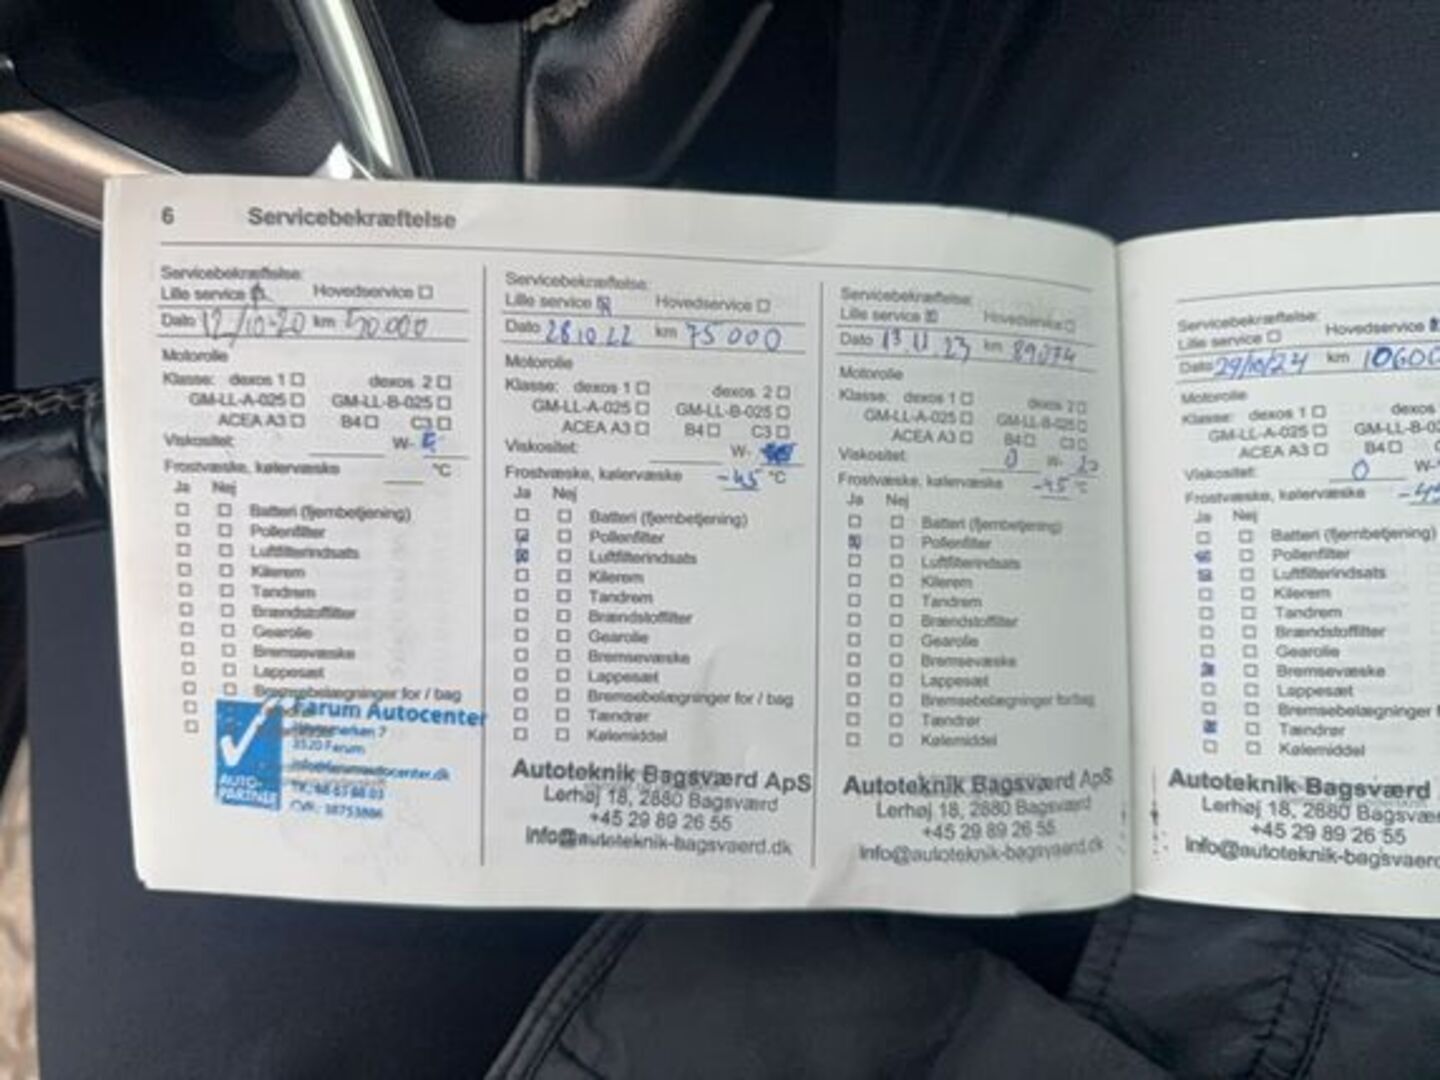 6 Servicebekræftelse
Servicebekræftelse:
Lille service Hovedservice
Dato 12/10-20 km 50.000
Motorolie
Klasse: dexos 1 dexos 2
GM-LL-A-025 GM-LL-B-025
ACEA A3 B4 C3
Viskositet: W-
Frostvæske, kølervæske °C
Ja Nej
Batteri (fjernbetjening)
Pollenfilter
Luftfilterindsats
Kilerem
Tandrem
Brændstoffilter
Gearolie
Bremsevæske
Lappesæt
Bremsebelægninger for / bag
Farum Autocenter
3520 Farum
info@farumautocenter.dk
AUTO-
PARTNER
Servicebekræftelse:
Lille service Hovedservice
Dato 28 10 22 km 75 000
Motorolie
Klasse: dexos 1 dexos 2
GM-LL-A-025 GM-LL-B-025
ACEA A3 B4 C3
Viskositet: W-
Frostvæske, kølervæske -45 °C
Ja Nej
Batteri (fjernbetjening)
Pollenfilter
Luftfilterindsats
Kilerem
Tandrem
Brændstoffilter
Gearolie
Bremsevæske
Lappesæt
Bremsebelægninger for / bag
Tændrør
Kølemiddel
Autoteknik Bagsværd ApS
Lerhøj 18, 2880 Bagsværd
+45 29 89 26 55
info@autoteknik-bagsvaerd.dk
Servicebekræftelse:
Lille service Hovedservice
Dato 13.11.23 km 89074
Motorolie
Klasse: dexos 1 dexos 2
GM-LL-A-025 GM-LL-B-025
ACEA A3 B4 C3
Viskositet: 0 W- 20
Frostvæske, kølervæske -45 °C
Ja Nej
Batteri (fjernbetjening)
Pollenfilter
Luftfilterindsats
Kilerem
Tandrem
Brændstoffilter
Gearolie
Bremsevæske
Lappesæt
Bremsebelægninger for/bag
Tændrør
Kølemiddel
Autoteknik Bagsværd ApS
Lerhøj 18, 2880 Bagsværd
+45 29 89 26 55
info@autoteknik-bagsvaerd.dk
Servicebekræftelse:
Lille service Hovedservice
Dato 29/10/24 km 10600
Motorolie
Klasse: dexos 1 dexos
GM-LL-A-025 GM-LL-B-02
ACEA A3 B4 C
Viskositet: 0 W-
Frostvæske, kølervæske
Ja Nej
Batteri (fjernbetjening)
Pollenfilter
Luftfilterindsats
Kilerem
Tandrem
Brændstoffilter
Gearolie
Bremsevæske
Lappesæt
Bremsebelægninger f
Tændrør
Kølemiddel
Autoteknik Bagsværd
Lerhøj 18, 2880 Bagsvær
+45 29 89 26 55
info@autoteknik-bagsvaerd